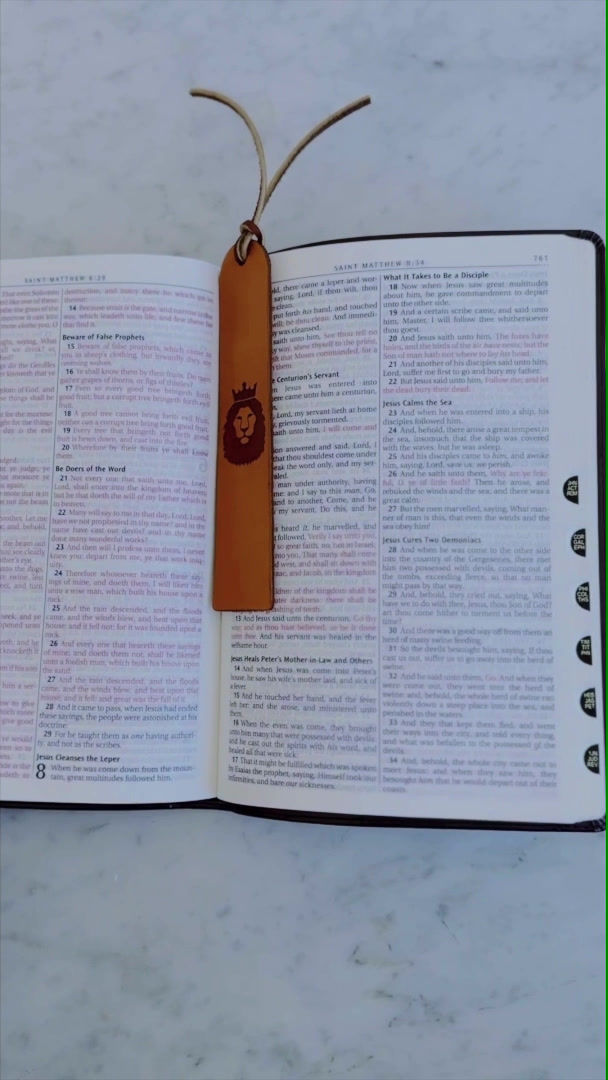 SAINT MATTHEW 6:29
destruction, and many there be which go in
thereat:
14 Because strait is the gate, and narrow is the
way, which leadeth unto life, and few there be
that find it.
Beware of False Prophets
15 Beware of false prophets, which come to
you in sheep's clothing, but inwardly they are
ravening wolves.
16 Ye shall know them by their fruits. Do men
gather grapes of thorns, or figs of thistles?
17 Even so every good tree bringeth forth
good fruit; but a corrupt tree bringeth forth evil
fruit.
18 A good tree cannot bring forth evil fruit,
neither can a corrupt tree bring forth good fruit.
19 Every tree that bringeth not forth good
fruit is hewn down, and cast into the fire.
20 Wherefore by their fruits ye shall know
them.
Be Doers of the Word
21 Not every one that saith unto me, Lord,
Lord, shall enter into the kingdom of heaven;
but he that doeth the will of my Father which is
in heaven.
22 Many will say to me in that day, Lord, Lord,
have we not prophesied in thy name? and in thy
name have cast out devils? and in thy name
done many wonderful works?
23 And then will I profess unto them, I never
knew you: depart from me, ye that work iniq-
uity.
24 Therefore whosoever heareth these say-
ings of mine, and doeth them, I will liken him
unto a wise man, which built his house upon a
rock:
25 And the rain descended, and the floods
came, and the winds blew, and beat upon that
house; and it fell not: for it was founded upon a
rock.
26 And every one that heareth these sayings
of mine, and doeth them not, shall be likened
unto a foolish man, which built his house upon
the sand:
27 And the rain descended, and the floods
came, and the winds blew, and beat upon that
house; and it fell: and great was the fall of it.
28 And it came to pass, when Jesus had ended
these sayings, the people were astonished at his
doctrine:
29 For he taught them as one having authori-
ty, and not as the scribes.
Jesus Cleanses the Leper
8 When he was come down from the moun-
tain, great multitudes followed him.
SAINT MATTHEW 8:34
761
there came a leper and wor-
saying, Lord, if thou wilt, thou
clean.
put forth his hand, and touched
will; be thou clean. And immedi-
was cleansed.
saith unto him, See thou tell no
way, shew thyself to the priest,
that Moses commanded, for a
them.
Centurion's Servant
Jesus was entered into
there came unto him a centurion,
Lord, my servant lieth at home
grievously tormented.
saith unto him, I will come and
answered and said, Lord, I
that thou shouldest come under
speak the word only, and my ser-
healed.
man under authority, having
me: and I say to this man, Go,
and to another, Come, and he
my servant, Do this, and he
heard it, he marvelled, and
followed, Verily I say unto you,
so great faith, no, not in Israel.
you, That many shall come
west, and shall sit down with
Isaac, and Jacob, in the kingdom
children of the kingdom shall be
outer darkness: there shall be
gnashing of teeth.
13 And Jesus said unto the centurion, Go thy
way; and as thou hast believed, so be it done
unto thee. And his servant was healed in the
selfsame hour.
Jesus Heals Peter's Mother-in-Law and Others
14 And when Jesus was come into Peter's
house, he saw his wife's mother laid, and sick of
a fever.
15 And he touched her hand, and the fever
left her: and she arose, and ministered unto
them.
16 When the even was come, they brought
unto him many that were possessed with devils:
and he cast out the spirits with his word, and
healed all that were sick:
17 That it might be fulfilled which was spoken
by Esaias the prophet, saying, Himself took our
infirmities, and bare our sicknesses.
What It Takes to Be a Disciple
18 Now when Jesus saw great multitudes
about him, he gave commandment to depart
unto the other side.
19 And a certain scribe came, and said unto
him, Master, I will follow thee whithersoever
thou goest.
20 And Jesus saith unto him, The foxes have
holes, and the birds of the air have nests; but the
Son of man hath not where to lay his head.
21 And another of his disciples said unto him,
Lord, suffer me first to go and bury my father.
22 But Jesus said unto him, Follow me; and let
the dead bury their dead.
Jesus Calms the Sea
23 And when he was entered into a ship, his
disciples followed him.
24 And, behold, there arose a great tempest in
the sea, insomuch that the ship was covered
with the waves: but he was asleep.
25 And his disciples came to him, and awoke
him, saying, Lord, save us: we perish.
26 And he saith unto them, Why are ye fear-
ful, O ye of little faith? Then he arose, and
rebuked the winds and the sea; and there was a
great calm.
27 But the men marvelled, saying, What man-
ner of man is this, that even the winds and the
sea obey him!
Jesus Cures Two Demoniacs
28 And when he was come to the other side
into the country of the Gergesenes, there met
him two possessed with devils, coming out of
the tombs, exceeding fierce, so that no man
might pass by that way.
29 And, behold, they cried out, saying, What
have we to do with thee, Jesus, thou Son of God?
art thou come hither to torment us before the
time?
30 And there was a good way off from them an
herd of many swine feeding.
31 So the devils besought him, saying, If thou
cast us out, suffer us to go away into the herd of
swine.
32 And he said unto them, Go. And when they
were come out, they went into the herd of
swine: and, behold, the whole herd of swine ran
violently down a steep place into the sea, and
perished in the waters.
33 And they that kept them fled, and went
their ways into the city, and told every thing,
and what was befallen to the possessed of the
devils.
34 And, behold, the whole city came out to
meet Jesus: and when they saw him, they
besought him that he would depart out of their
coasts.
JHN
ACT
ROM
COR
GAL
EPH
PHI
COL
THS
TIM
TIT
PHN
HEB
JAS
PET
JHN
JUD
REV